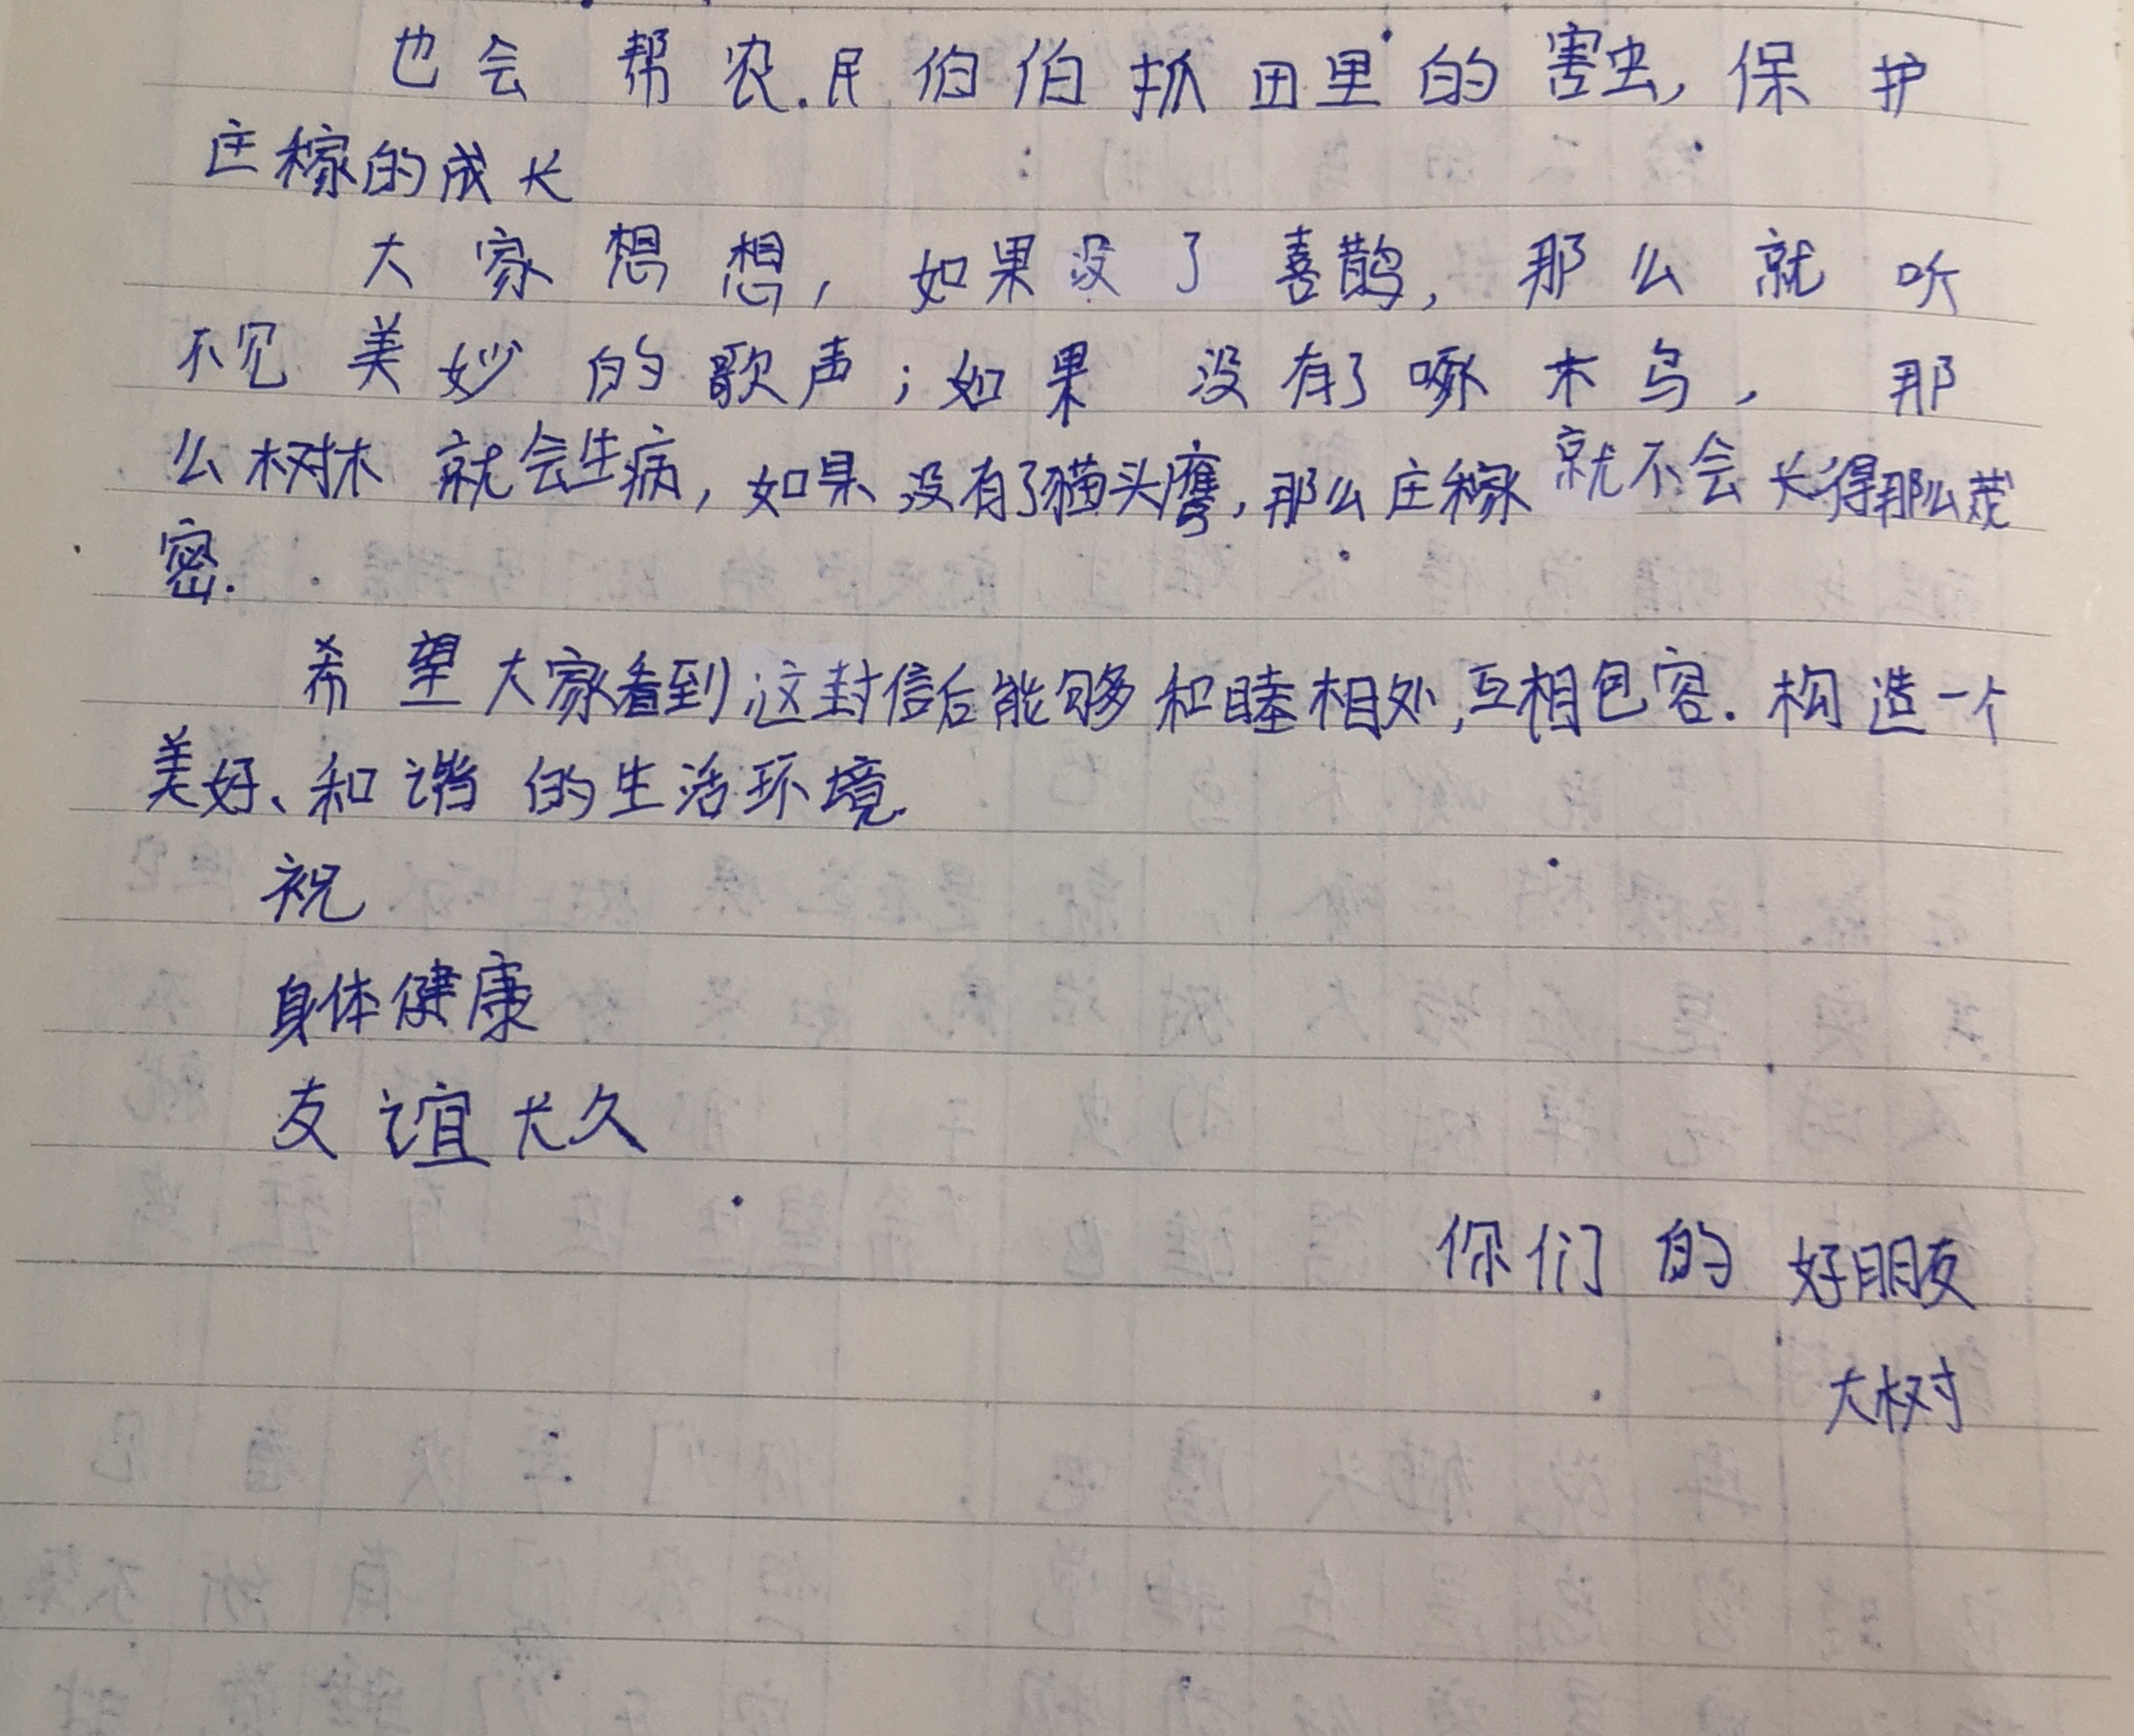 也会帮农.民伯伯抓田里的害虫,保护
庄稼的成长
大家想想,如果没了喜鹊,那么就听
不见美妙的歌声;如果没有了啄木鸟,那
么树木就会生病,如果没有了猫头鹰,那么庄稼就不会长得那么茂
密.
希望大家看到这封信后能够和睦相处,互相包容.构造一个
美好、和谐的生活环境.
祝
身体健康
友谊长久
你们的好朋友
大树